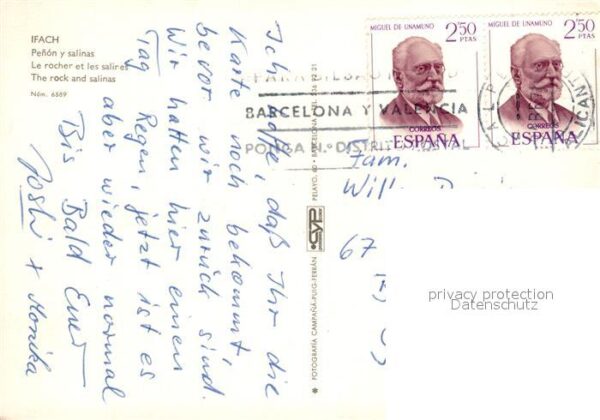 IFACH
Peñón y salinas
Le rocher et les salines
The rock and salinas
Núm. 6889
Ich hoffe, daß Ihr die
Karte noch bekommt,
bevor wir zurück sind.
Wir hatten hier einen
Tag Regen, jetzt ist es
aber wieder normal
Bis Bald Euer
Joshi + Monika
FOTOGRAFÍA CAMPAÑÁ-PUIG-FERRÁN
CYP
PELAYO, 60 • BARCELONA
MIGUEL DE UNAMUNO
2'50
PTAS
CORREOS
ESPAÑA
MIGUEL DE UNAMUNO
2'50
PTAS
CORREOS
ESPAÑA
BARCELONA Y VALENCIA
PONGA N.º DISTRITO POSTAL
Fam.
67
privacy protection
Datenschutz